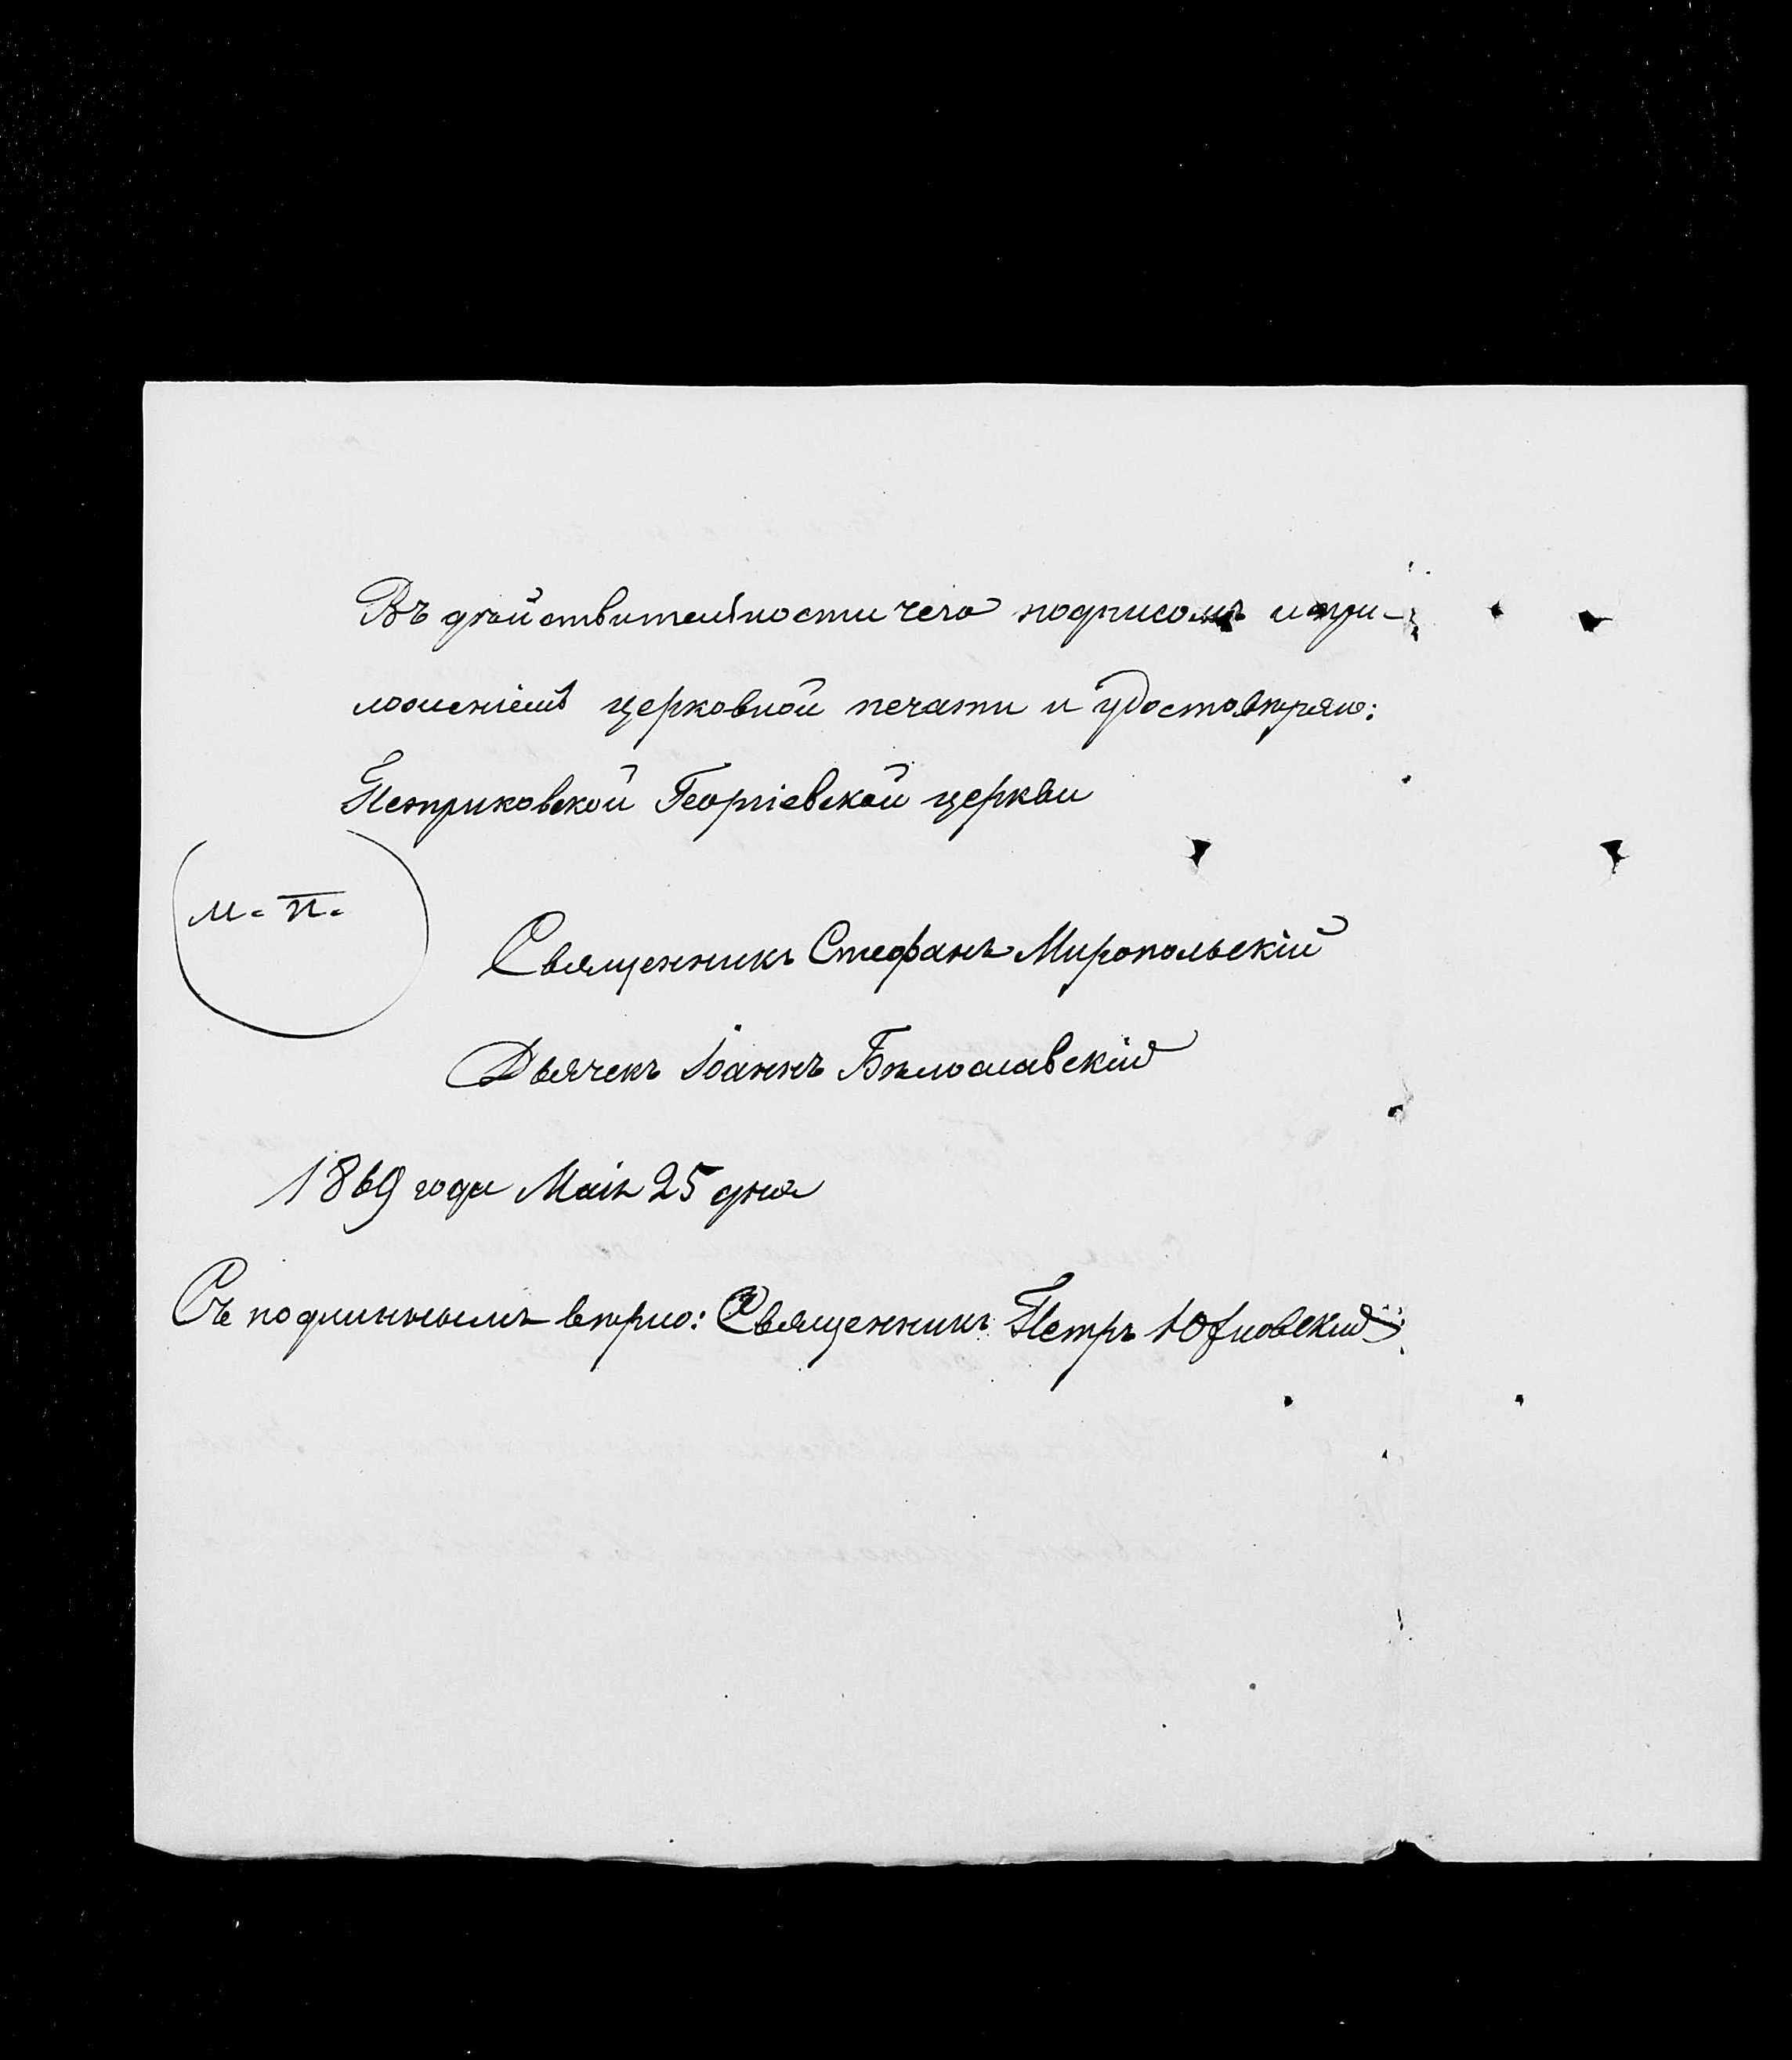 Въ дѣйствительности чего подписомъ и при-
ложеніемъ церковной печати и удостовѣряю:
Петриковской Георгіевской церкви
М. П.
Священникъ Стефанъ Миропольскій
Дьячекъ Іоаннъ Бѣлославскій
1869 года Маія 25 дня
Съ подлиннымъ вѣрно: Священникъ Петръ